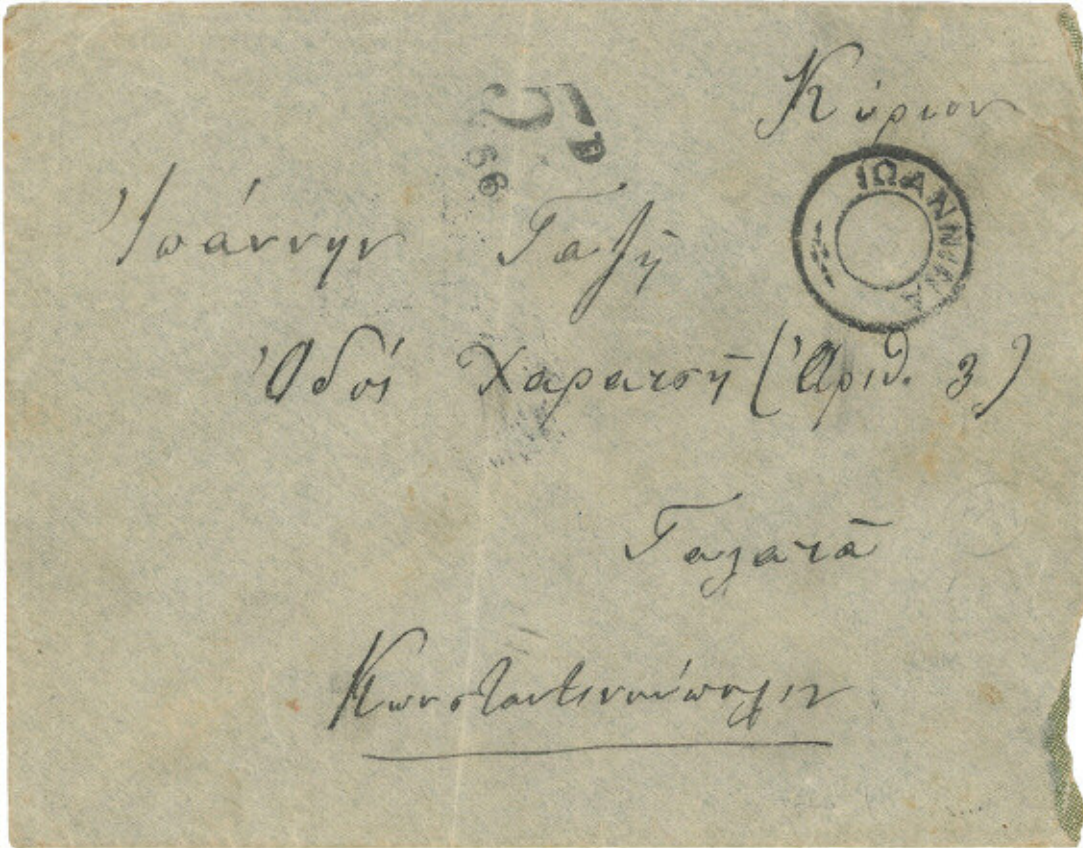 Κύριον
ΙΩΑΝΝΙΝΑ
66
Ἰωάννην
Ὁδός Χαρατσῆ (Ἀριθ. 3)
Γαλατᾶ
Κωνσταντινούπολιν